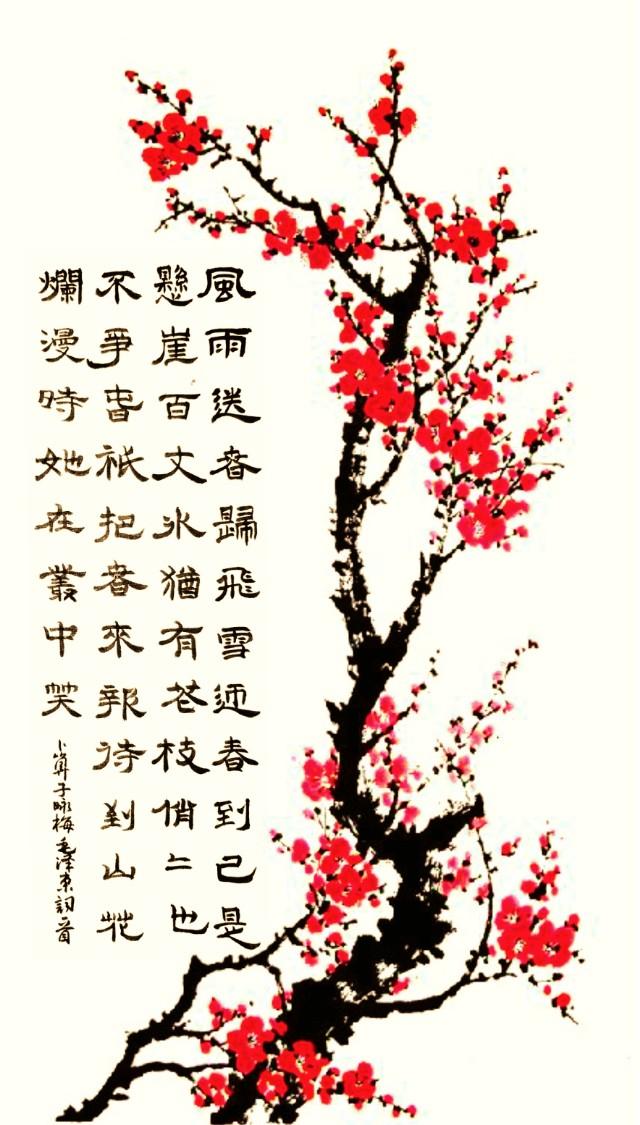 風雨送春歸飛雪迎春到已是
懸崖百丈氷猶有花枝俏二也
不爭春祇把春來報待到山花
爛漫時她在叢中笑
卜算子咏梅毛澤東詞一首